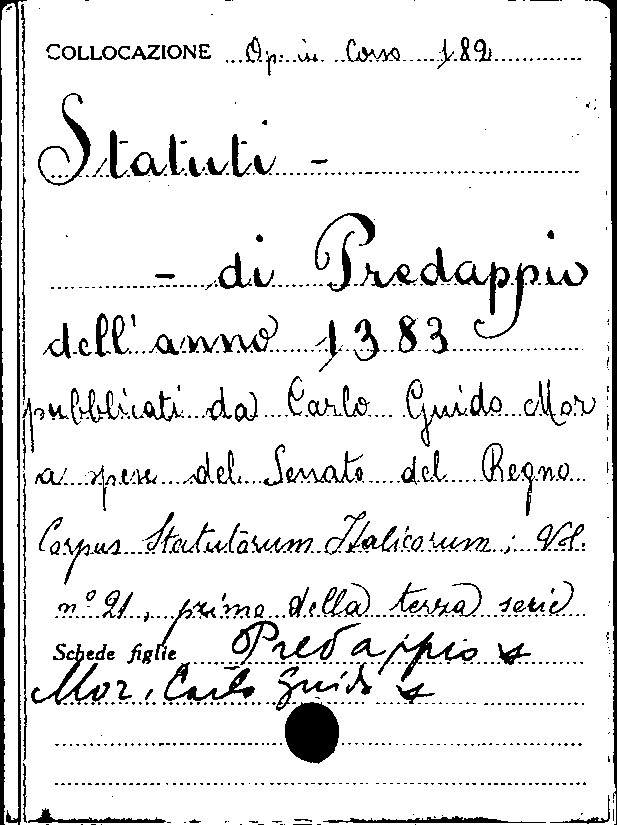 COLLOCAZIONE Op. in Corso 182
Statuti -
- di Predappio
dell'anno 1383
pubblicati da Carlo Guido Mor
a spese del Senato del Regno
Corpus Statutorum Italicorum; Vol.
n° 21, primo della terza serie
Schede figlie Predappio
Mor, Carlo Guido